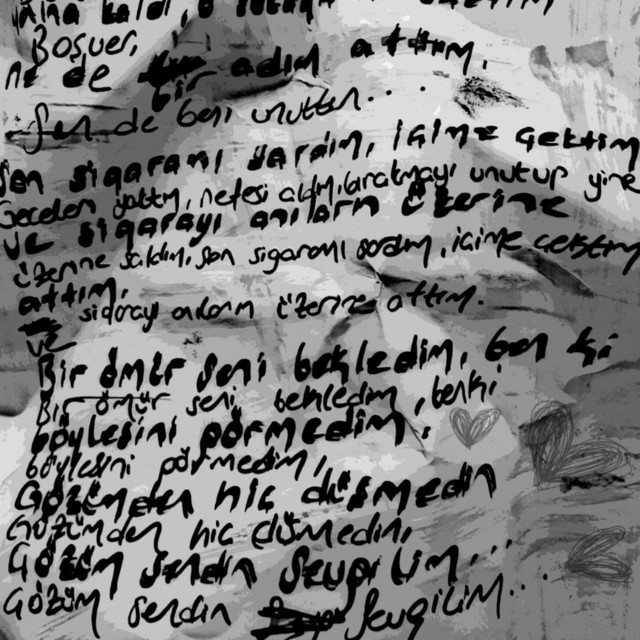 kaldı,
Boşver,
ne de bir adım attım,
Sen de beni unuttun...
Son sigaramı sardım, içime çektim
Geceden yattım, nefesi aldım, unutup yine
ve sigarayı anıların üzerine
üzerine saldım, son sigaramı sardım, içime çektim
attım,
sigaray anıların üzerine attım.
ve
Bir ömür seni bekledim, ben ki
Bir ömür seni bekledim, belki
böylesini görmedim,
böylesini görmedim,
Gözümden hiç düşmedin
Gözümden hic düşmedin,
Gözüm sendin Sevgilim...
Gözüm sendin Sevgilim...